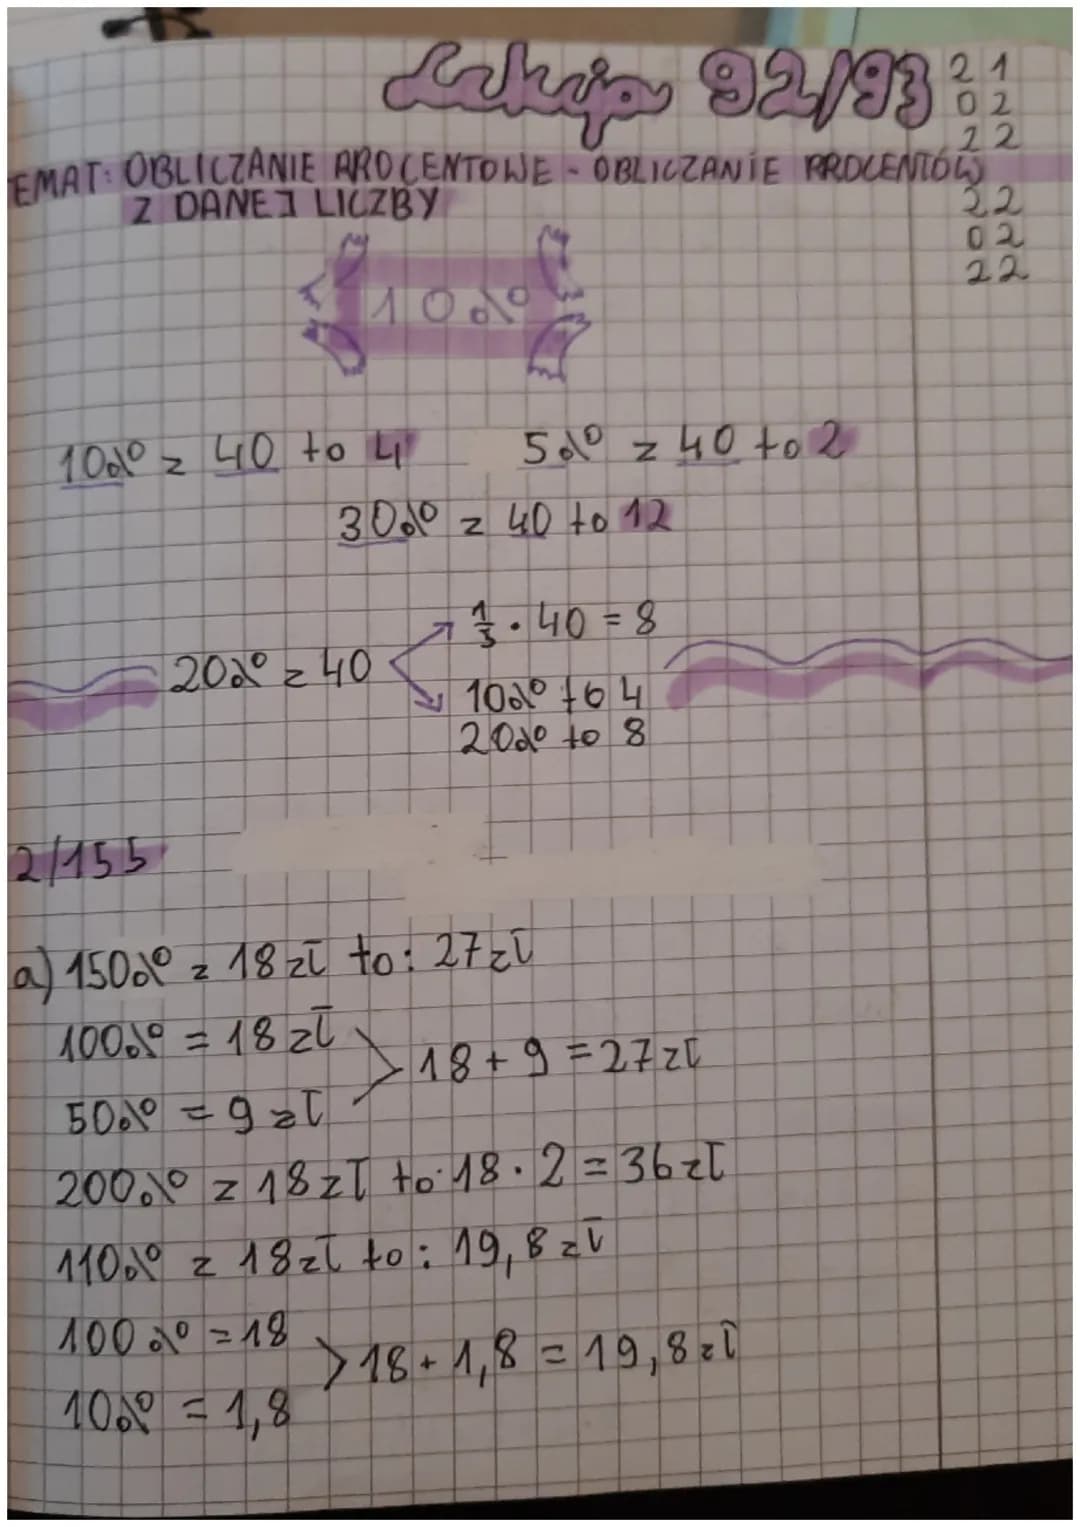 Lekcja 92/93
21
02
22
EMAT: OBLICZANIE AROCENTOWE - OBLICZANIE PROCENTÓW
Z DANEJ LICZBY
22
02
22
10%
10% z 40 to 4
5% z 40 to 2
30% z 40 to 12
20% z 40
1/5 · 40 = 8
10% to 4
20% to 8
2/155
a) 150% z 18 zł to: 27 zł
100% = 18 zł
50% = 9 zł
18 + 9 = 27 zł
200% z 18 zł to 18 · 2 = 36 zł
110% z 18 zł to: 19,8 zł
100% = 18
10% = 1,8
18 + 1,8 = 19,8 zł